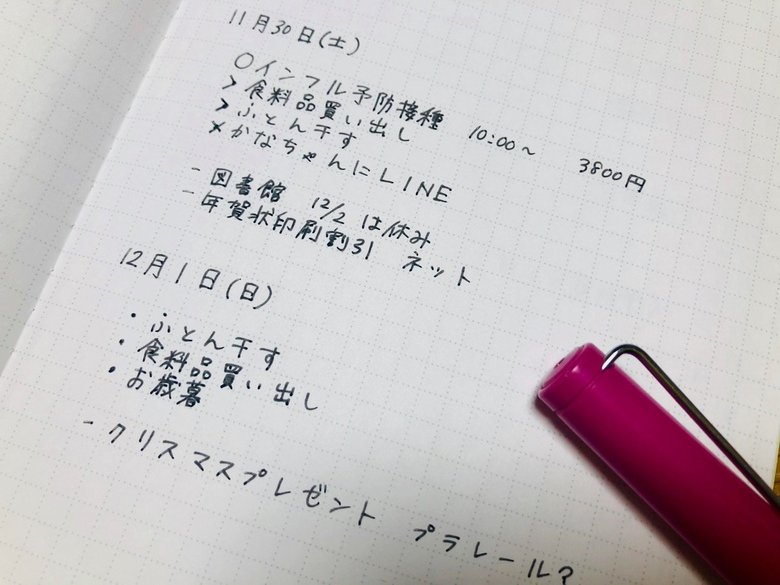 11月30日(土)
○インフル予防接種 10:00〜 3800円
>食料品買い出し
>ふとん干す
×かなちゃんにLINE
-図書館 12/2は休み
-年賀状印刷割引 ネット
12月1日(日)
・ふとん干す
・食料品買い出し
・お歳暮
-クリスマスプレゼント プラレール?